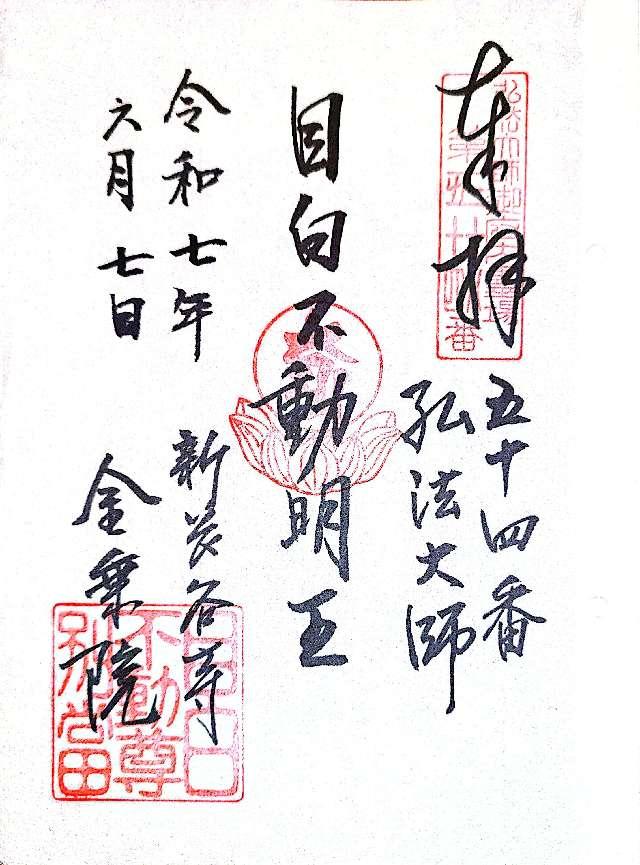 奉拝
五十四番
弘法大師
目白不動明王
令和七年
六月七日
新長谷寺
金乗院
目白
不動尊
別当